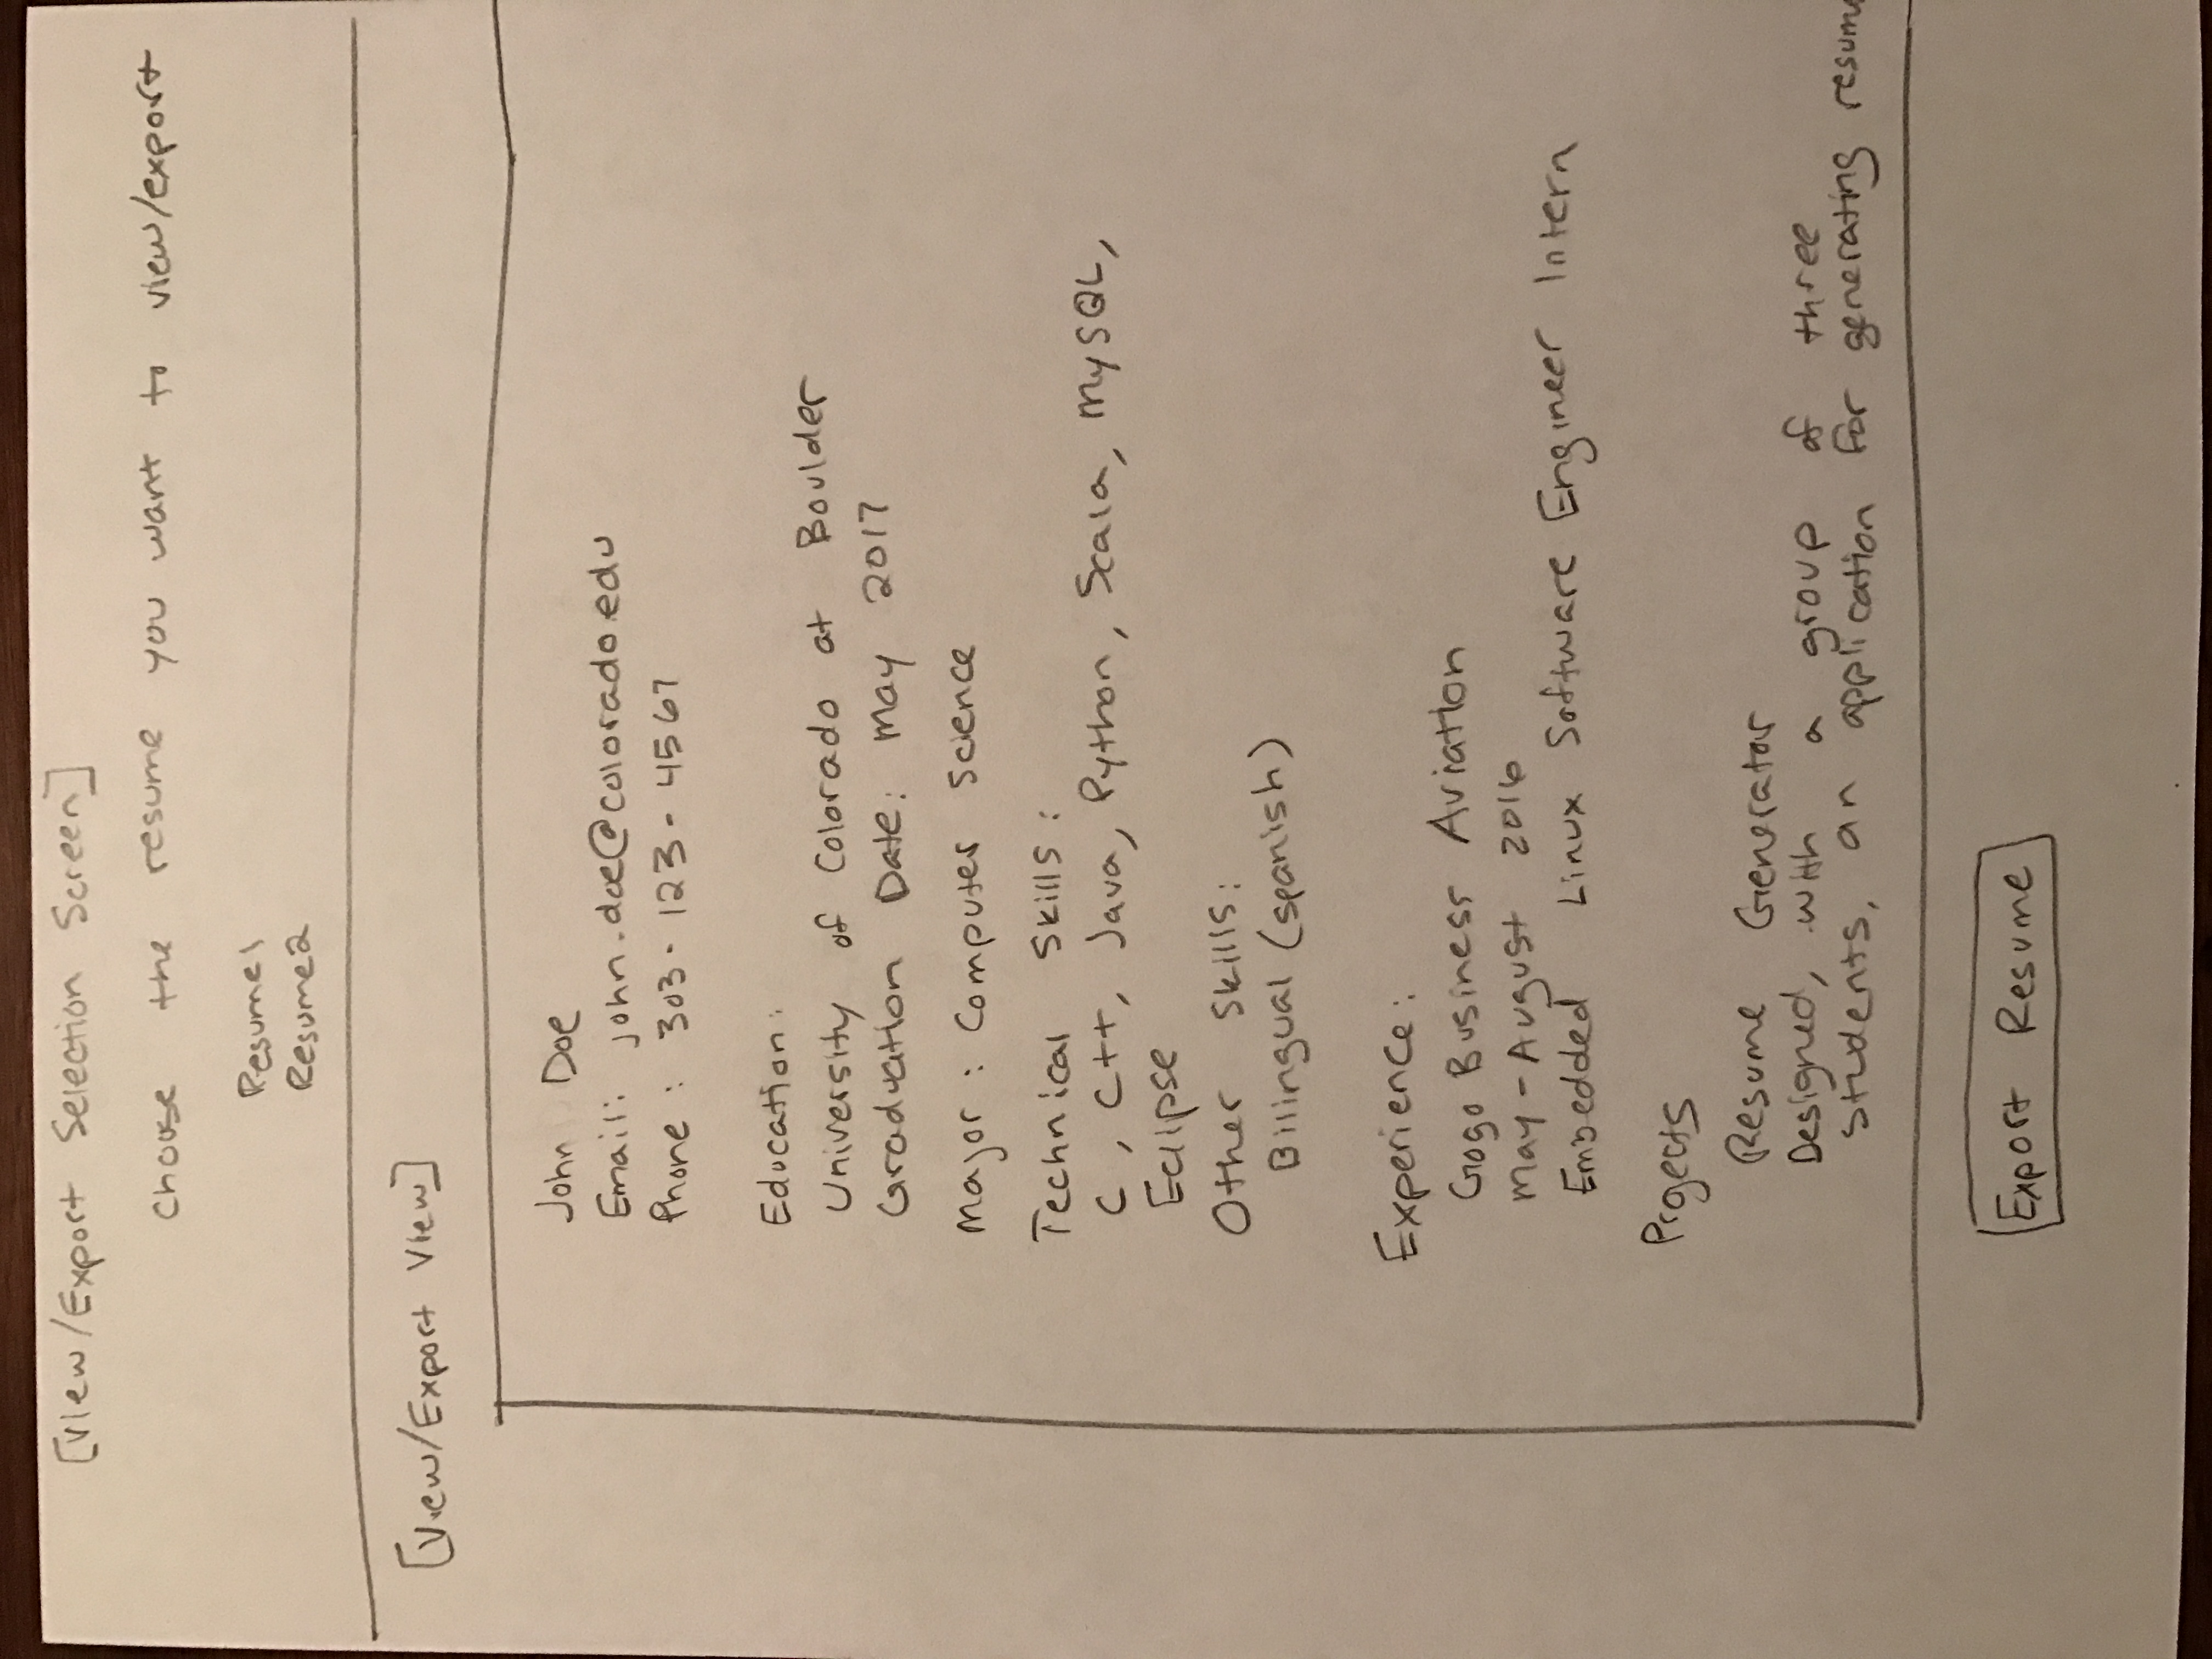 [View/Export Selection Screen]
Choose the resume you want to view/export
Resume1
Resume2
[View/Export View]
John Doe
Email: john.doe@colorado.edu
Phone: 303-123-4567
Education:
University of Colorado at Boulder
Graduation Date: May 2017
Major: Computer Science
Technical Skills:
C, C++, Java, Python, Scala, MySQL,
Eclipse
Other Skills:
Bilingual (spanish)
Experience:
Gogo Business Aviation
May-August 2016
Embedded Linux Software Engineer Intern
Projects
Resume Generator
Designed, with a group of three
students, an application for generating resum
Export Resume